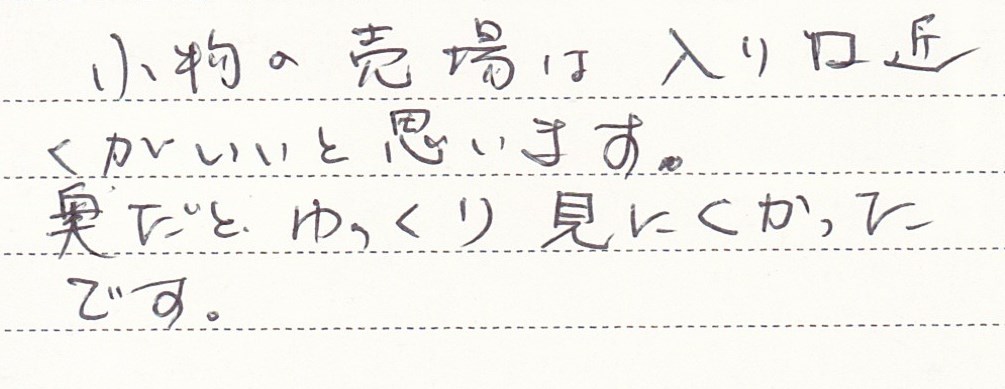 小物の売場は入り口近
くがいいと思います。
奥だとゆっくり見にくかった
です。